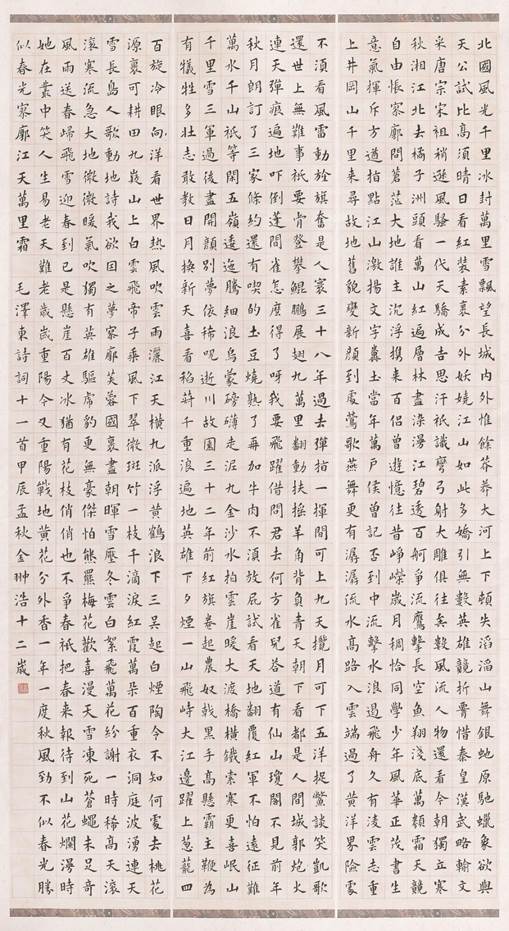 北國風光千里冰封萬里雪飄望長城內外惟餘莽莽大河上下頓失滔滔山舞銀蛇原馳蠟象欲與
天公試比高須晴日看紅裝素裹分外妖嬈江山如此多嬌引無數英雄競折腰惜秦皇漢武略輸文
采唐宗宋祖稍遜風騷一代天驕成吉思汗祇識彎弓射大雕俱往矣數風流人物還看今朝獨立寒
秋湘江北去橘子洲頭看萬山紅遍層林盡染漫江碧透百舸爭流鷹擊長空魚翔淺底萬類霜天競
自由悵寥廓問蒼茫大地誰主沉浮攜來百侶曾遊憶往昔崢嶸歲月稠恰同學少年風華正茂書生
意氣揮斥方遒指點江山激揚文字糞土當年萬戶侯曾記否到中流擊水浪遏飛舟久有凌雲志重
上井岡山千里來尋故地舊貌變新顏到處鶯歌燕舞更有潺潺流水高路入雲端過了黃洋界險處
不須看風雷動旌旗奮是人寰三十八年過去彈指一揮間可上九天攬月可下五洋捉鱉談笑凱歌
還世上無難事祇要肯登攀鯤鵬展翅九萬里翻動扶搖羊角背負青天朝下看都是人間城郭炮火
連天彈痕遍地嚇倒蓬間雀怎麼得了呀我要飛躍借問君去何方雀兒答道有仙山瓊閣不見前年
秋月朗訂了三家條約還有喫的土豆燒熟了再加牛肉不須放屁試看天地翻覆紅軍不怕遠征難
萬水千山祇等閑五嶺逶迤騰細浪烏蒙磅礴走泥丸金沙水拍雲崖暖大渡橋橫鐵索寒更喜岷山
千里雪三軍過後盡開顏別夢依稀咒逝川故園三十二年前紅旗卷起農奴戟黑手高懸霸主鞭為
有犧牲多壯志敢教日月換新天喜看稻菽千重浪遍地英雄下夕煙一山飛峙大江邊躍上蔥蘢四
百旋冷眼向洋看世界熱風吹雲雨灑江天橫九派浮黃鶴浪下三吳起白煙陶令不知何處去桃花
源裏可耕田九嶷山上白雲飛帝子乘風下翠微斑竹一枝千滴淚紅霞萬朵百重衣洞庭波湧連天
雪長島人歌動地詩我欲因之夢寥廓芙蓉國裏盡朝暉雪壓冬雲白絮飛萬花紛謝一時稀高天滾
滾寒流急大地微微暖氣吹獨有英雄驅虎豹更無豪傑怕熊羆梅花歡喜漫天雪凍死蒼蠅未足奇
風雨送春歸飛雪迎春到已是懸崖百丈冰猶有花枝俏俏也不爭春祇把春來報待到山花爛漫時
她在叢中笑人生易老天難老歲歲重陽今又重陽戰地黃花分外香一年一度秋風勁不似春光勝
似春光寥廓江天萬里霜 毛澤東詩詞十一首甲辰孟秋金翀浩十二歲